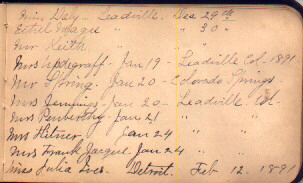 Miss Daly - Leadville. Dec 29th
Ethel Magee " " 30 "
Mr Keith " "
Mrs Updegraff - Jan 19 - Leadville Col - 1891
Mr Strong. Jan 20 - Colorado Springs.
Mrs Jennings - Jan 20 - Leadville Col.
Mrs Pemberthy - Jan 21 " "
Mrs Hitner, Jan 24 " "
Mrs Frank Jacquel Jan 24 " "
Miss Julia Ives - Detroit. Feb 12. 1891